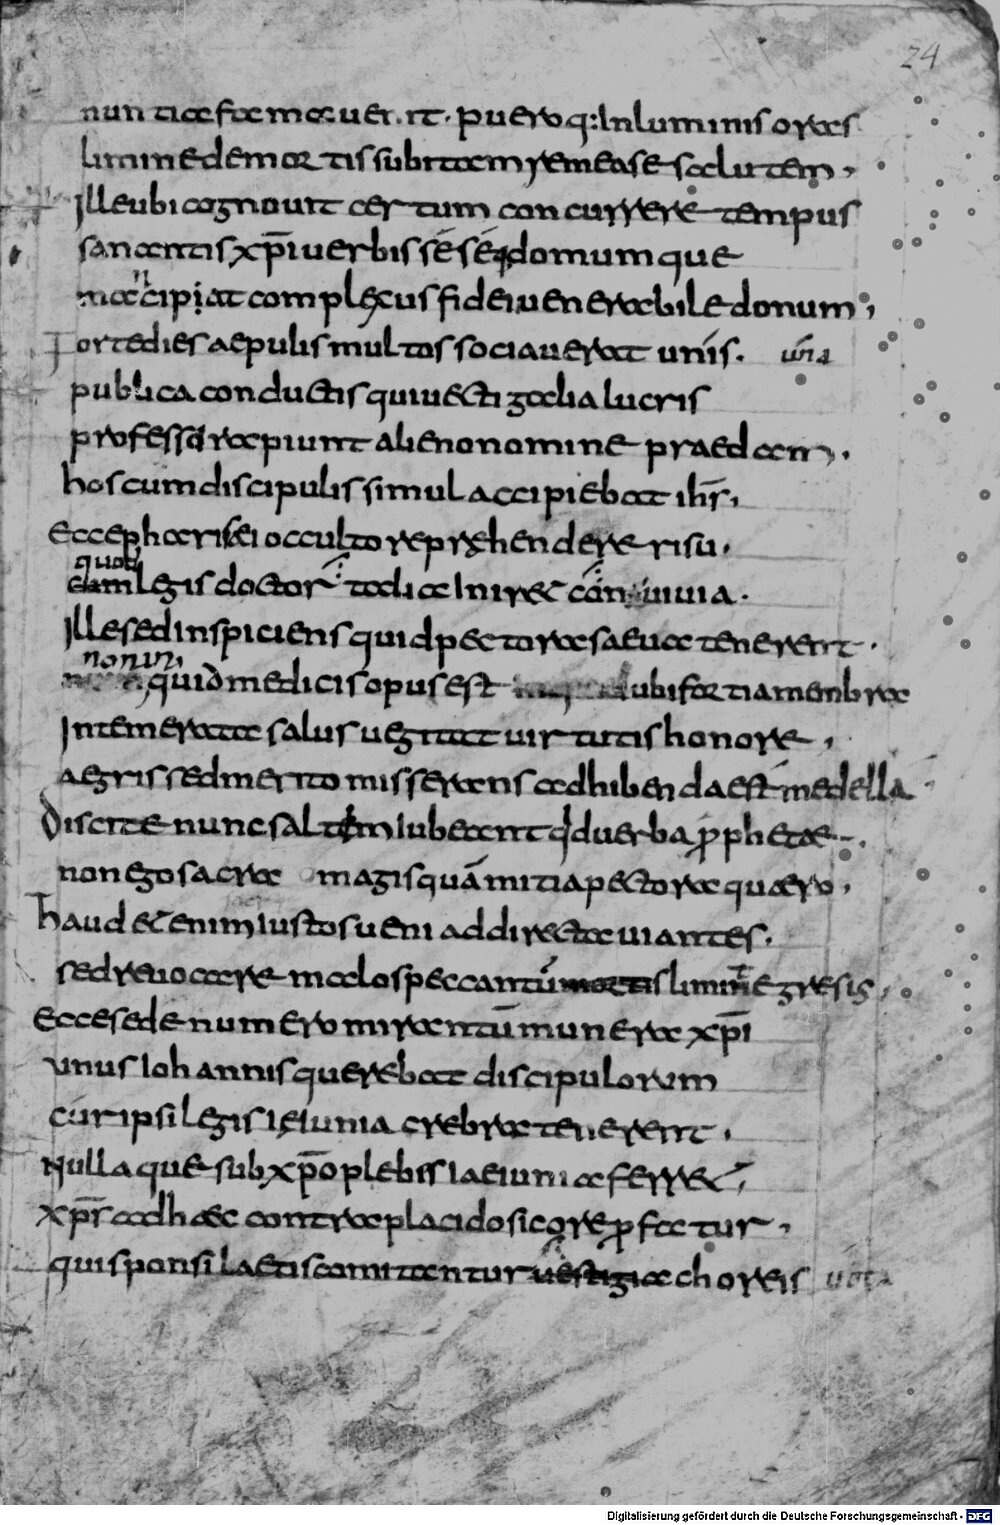 24
nuntia fama uenit. puerumq: In luminis oras
limine de mortis subitam remease salutem,
Ille ubi cognouit certum concurrere tempus
sanantis xp̄i uerbis sese domumque
mancipiat complexus fidei uenerabile donum,
Forte dies aepulis multos sociauerat unis. una
publica conductis qui uectigalia lucris
professi rapiunt alieno nomine praedam,.
hos cum discipulis simul accipiebat ih̄s,
Ecce pharisei occulto reprehendere risu,
quod
cum legis doctor talia Iniret conuiuia.
Ille sed inspiciens quid pectora saeua tenerent.
non in,
quid medicis opus est ubi fortia membra
Intemerata salus uegitat uirtutis honore,
aegris sed merito misserans adhibenda est medella
Discite nunc saltem Iubeant qd uerba prophetae.
non ego sacra magis quā mitia pectora quæro,
haud etenim Iustos ueni ad directa uiantes.
sed reuocare malos peccantū mortis limine gresis,
Ecce sede numero mirantū munera xp̄i
unus Iohannis querebat discipulorum
cur ipsi legis Ieiunia crebra tenerent,
Nullaque sub xp̄o plebis Iaeiunia ferret,
xp̄s ad hæc contra placido sic ore profatur,
qui sponsi laetis comitantur uestigia choreis uota
Digitalisierung gefördert durch die Deutsche Forschungsgemeinschaft - DFG